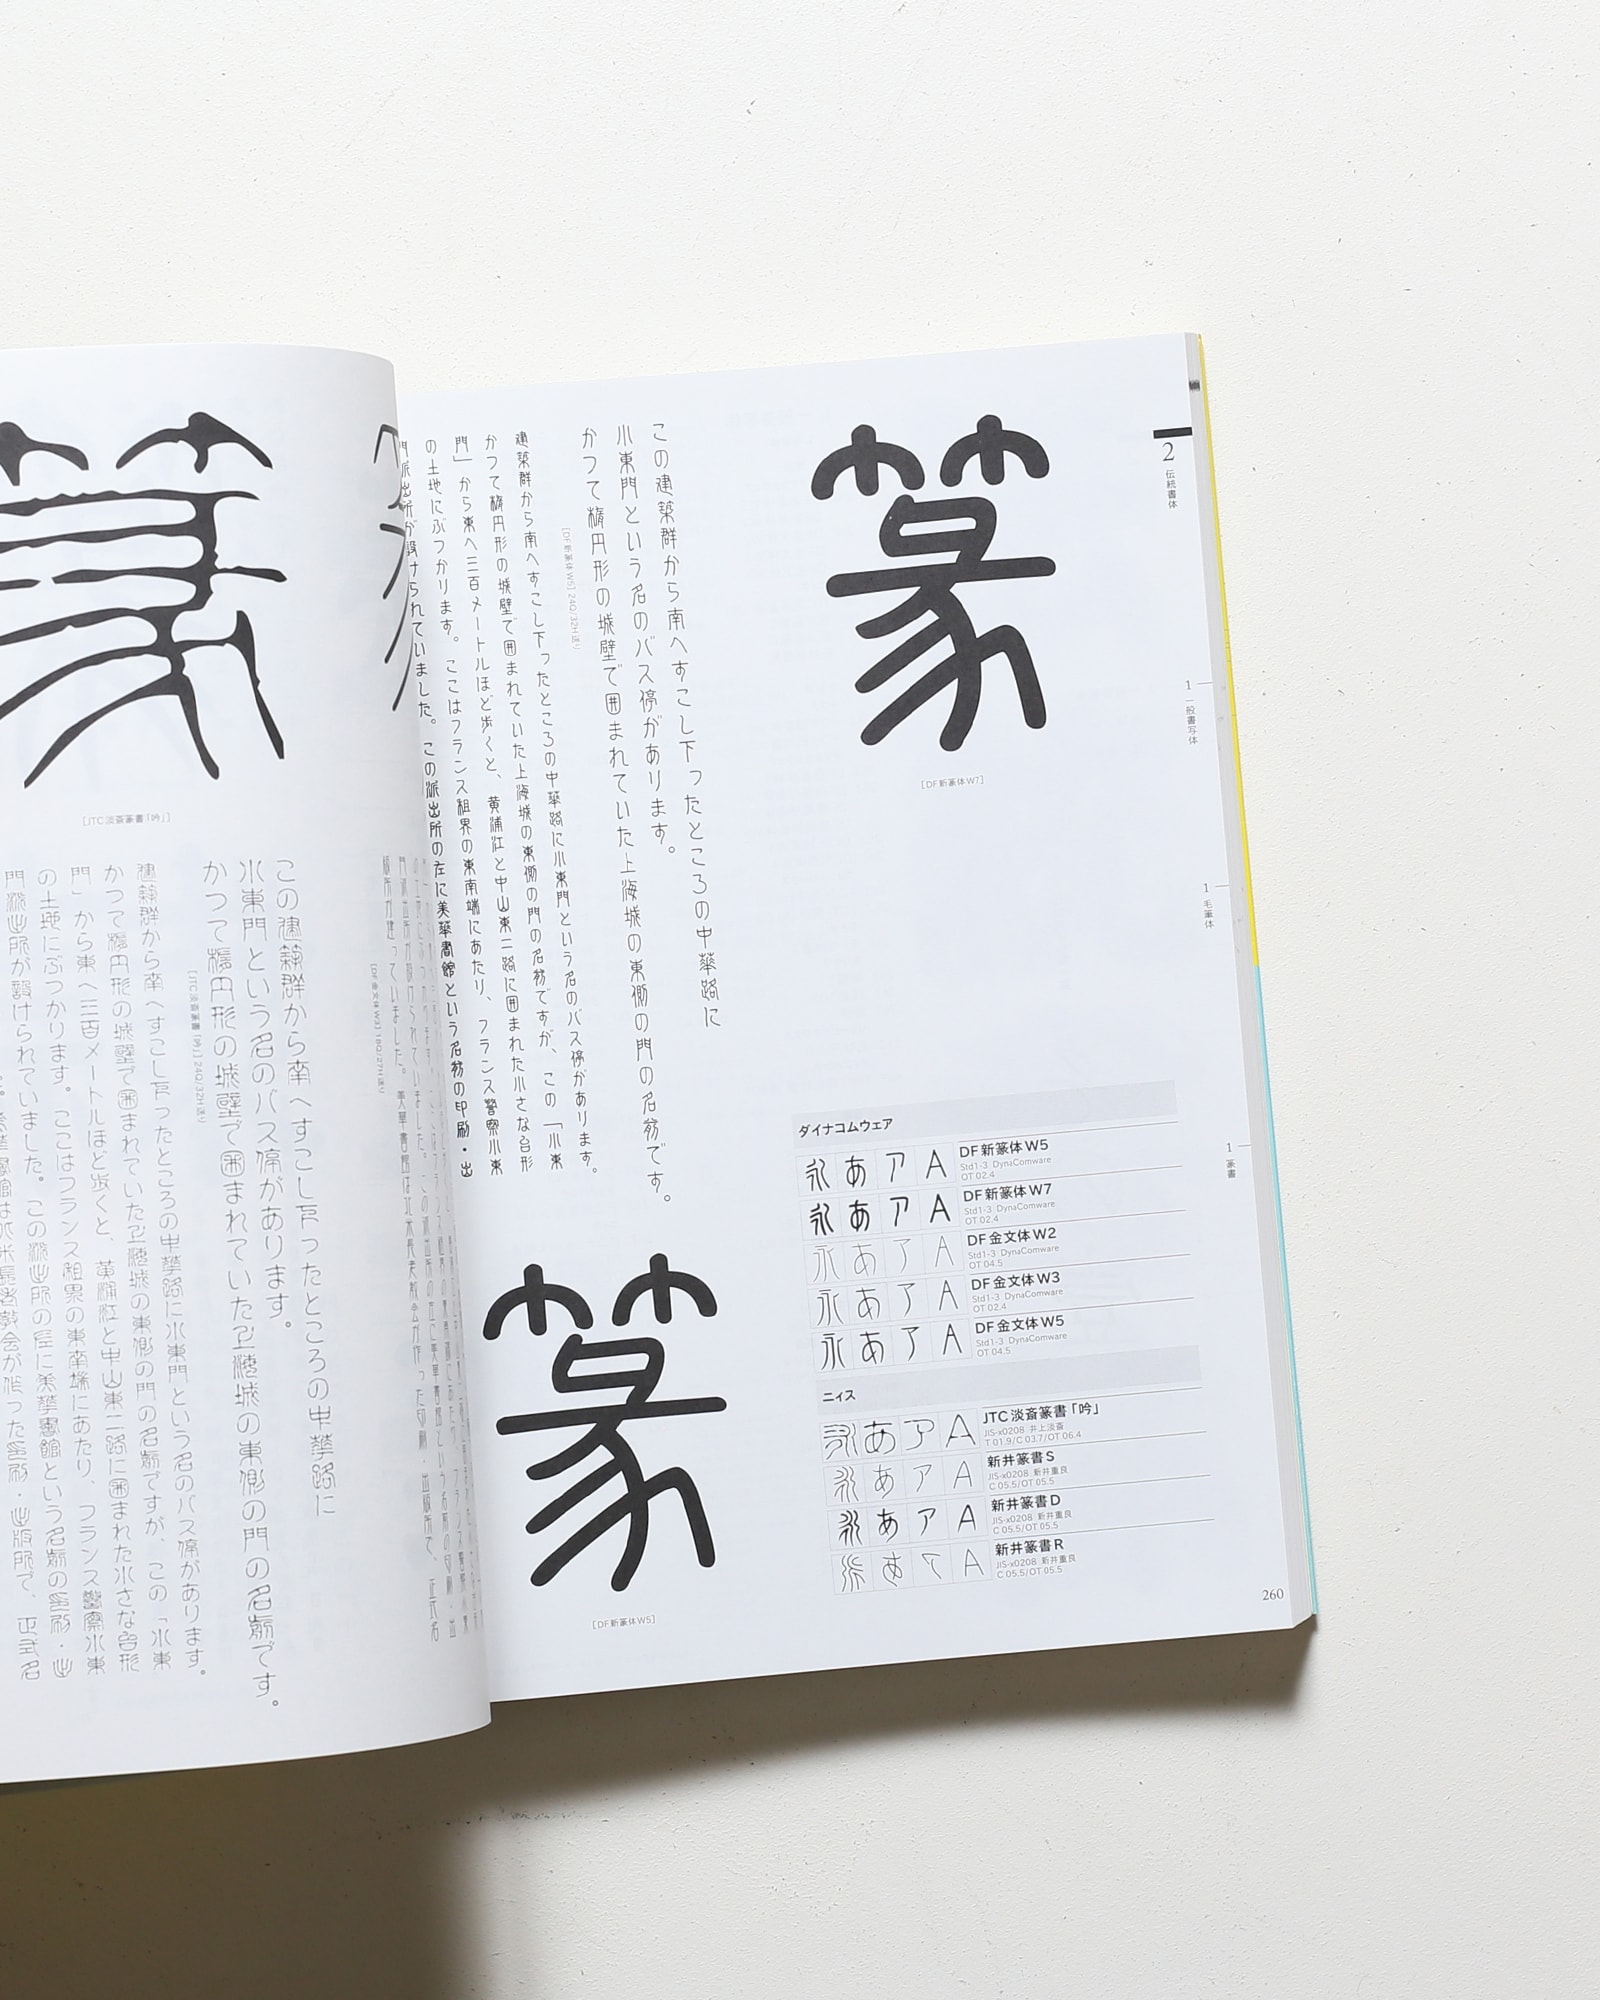 2
伝統書体
1
一般書写体
1
毛筆体
1
篆書
篆
[DF新篆体W7]
この建築群から南へすこし下ったところの中華路に
小東門という名のバス停があります。
かつて楕円形の城壁で囲まれていた上海城の東側の門の名前です。
[DF新篆体W5] 24Q/32H送り
建築群から南へすこし下ったところの中華路に小東門という名のバス停があります。
かつて楕円形の城壁で囲まれていた上海城の東側の門の名前ですが、この「小東
門」から東へ三百メートルほど歩くと、黄浦江と中山東二路に囲まれた小さな台形
の土地にぶつかります。ここはフランス租界の東南端にあたり、フランス警察小東
門派出所が設けられていました。この派出所の左に美華書館という名前の印刷・出
篆
[DF新篆体W5]
ダイナコムウェア
永あアA
DF新篆体W5
Std1-3 DynaComware
OT 02.4
永あアA
DF新篆体W7
Std1-3 DynaComware
OT 02.4
永あアA
DF金文体W2
Std1-3 DynaComware
OT 04.5
永あアA
DF金文体W3
Std1-3 DynaComware
OT 02.4
永あアA
DF金文体W5
Std1-3 DynaComware
OT 04.5
ニィス
永あアA
JTC淡斎篆書「吟」
JIS-x0208 井上淡斎
T 01.9/C 03.7/OT 06.4
永あアA
新井篆書S
JIS-x0208 新井重良
C 05.5/OT 05.5
永あアA
新井篆書D
JIS-x0208 新井重良
C 05.5/OT 05.5
永あアA
新井篆書R
JIS-x0208 新井重良
C 05.5/OT 05.5
260
篆
[JTC淡斎篆書「吟」]
[DF金文体W3] 18Q/27H送り
この建築群から南へすこし下ったところの中華路に
小東門という名のバス停があります。
かつて楕円形の城壁で囲まれていた上海城の東側の門の名前です。
[JTC淡斎篆書「吟」] 24Q/32H送り
建築群から南へすこし下ったところの中華路に小東門という名のバス停があります。
かつて楕円形の城壁で囲まれていた上海城の東側の門の名前ですが、この「小東
門」から東へ三百メートルほど歩くと、黄浦江と中山東二路に囲まれた小さな台形
の土地にぶつかります。ここはフランス租界の東南端にあたり、フランス警察小東
門派出所が設けられていました。この派出所の左に美華書館という名前の印刷・出